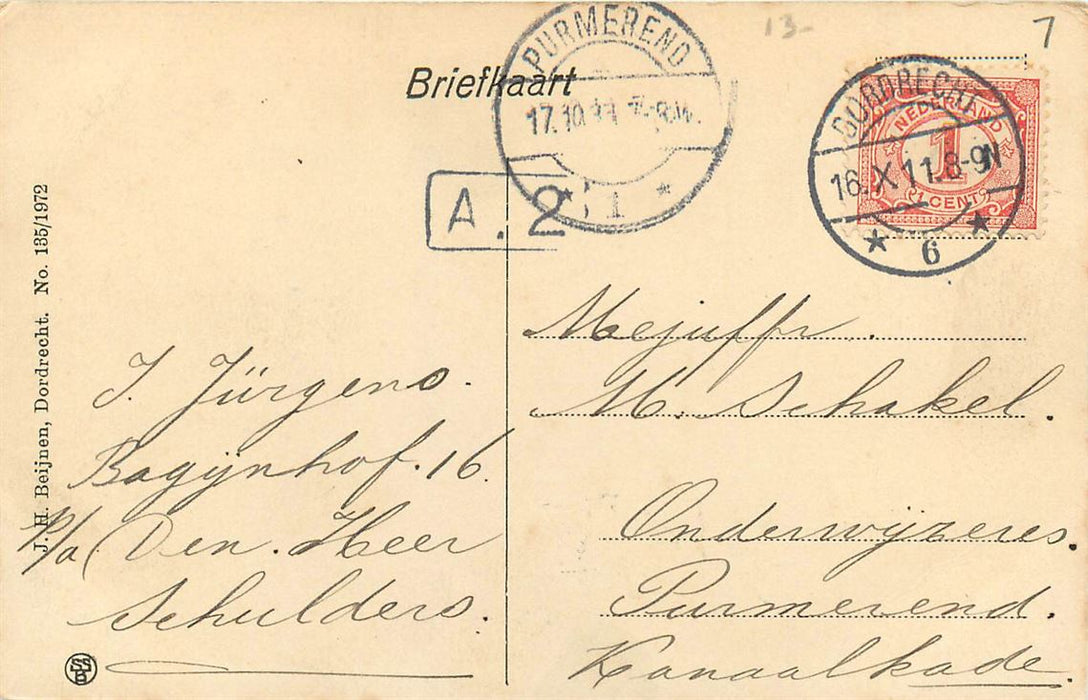 13-
7
Briefkaart
PURMEREND
17.10.11
1
A. 2
DORDRECHT
16.X.11.8-9N
6
NEDERLAND
1
CENT
J. H. Beijnen, Dordrecht. No. 135/1972
J. Jürgens.
Bagijnhof. 16.
p/a Den. Heer
Schulders.
SS
B
Mejuffr.
M. Schakel.
Onderwijzeres.
Purmerend.
Kanaalkade.